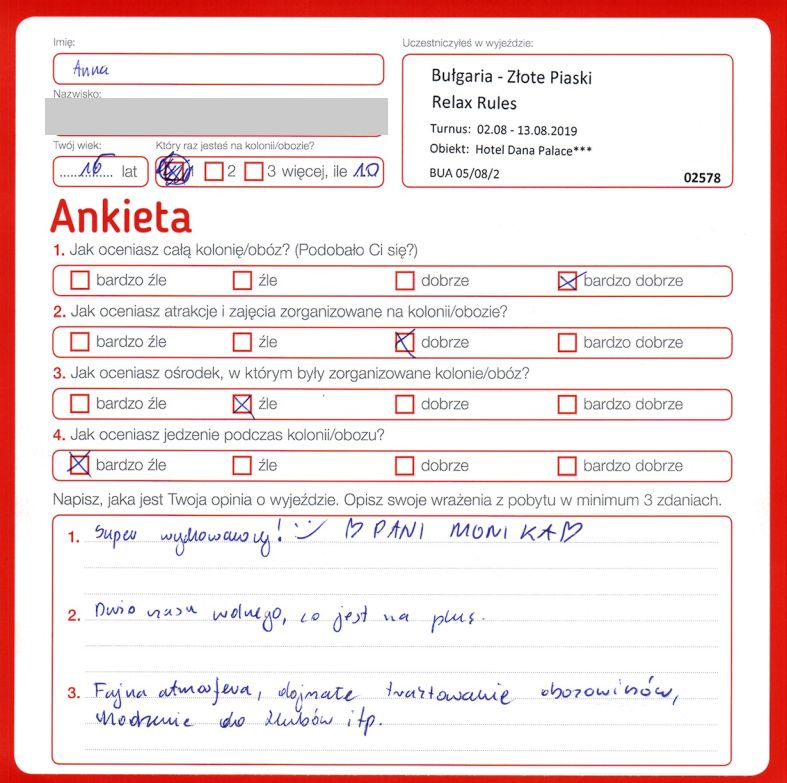 Imię:
Anna
Nazwisko:
Uczestniczyłeś w wyjeździe:
Bułgaria - Złote Piaski
Relax Rules
Turnus: 02.08 - 13.08.2019
Obiekt: Hotel Dana Palace***
BUA 05/08/2
02578
Twój wiek:
16 lat
Który raz jesteś na kolonii/obozie?
1 2 3 więcej, ile 10
Ankieta
1. Jak oceniasz całą kolonię/obóz? (Podobało Ci się?)
bardzo źle źle dobrze bardzo dobrze
2. Jak oceniasz atrakcje i zajęcia zorganizowane na kolonii/obozie?
bardzo źle źle dobrze bardzo dobrze
3. Jak oceniasz ośrodek, w którym były zorganizowane kolonie/obóz?
bardzo źle źle dobrze bardzo dobrze
4. Jak oceniasz jedzenie podczas kolonii/obozu?
bardzo źle źle dobrze bardzo dobrze
Napisz, jaka jest Twoja opinia o wyjeździe. Opisz swoje wrażenia z pobytu w minimum 3 zdaniach.
1. Super wychowawcy! :) ♡ PANI MONIKA ♡
2. Dużo czasu wolnego, co jest na plus.
3. Fajna atmosfera, dojrzałe traktowanie obozowiczów,
chodzenie do klubów itp.